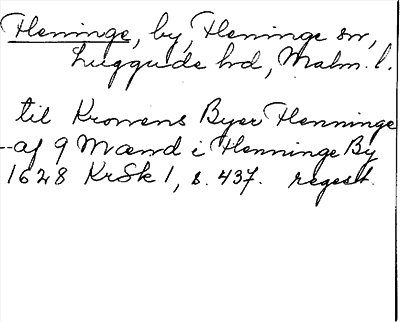 Flenninge, by, Fleninge sn,
Luggude hd, Malm. l.
til Kronens Byer Flenninge
-- af 9 Mænd i Flenninge By
1628 KrSk 1, s. 437. regest.